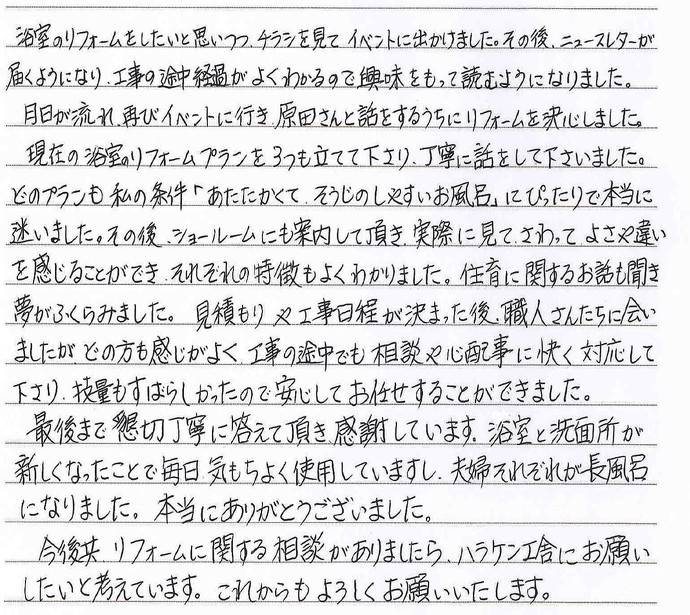 浴室のリフォームをしたいと思いつつ、チラシを見てイベントに出かけました。その後、ニュースレターが
届くようになり、工事の途中経過がよくわかるので興味をもって読むようになりました。
月日が流れ、再びイベントに行き、原田さんと話をするうちにリフォームを決心しました。
現在の浴室のリフォームプランを3つも立てて下さり、丁寧に話をして下さいました。
どのプランも私の条件「あたたかくて、そうじのしやすいお風呂」にぴったりで本当に
迷いました。その後、ショールームにも案内して頂き、実際に見て、さわって、よさや違い
を感じることができ、それぞれの特徴もよくわかりました。住育に関するお話も聞き
夢がふくらみました。見積もりや工事日程が決まった後、職人さんたちに会い
ましたが、どの方も感じがよく、工事の途中でも相談や心配事に快く対応して
下さり、技量もすばらしかったので安心してお任せすることができました。
最後まで懇切丁寧に答えて頂き、感謝しています。浴室と洗面所が
新しくなったことで毎日、気もちよく使用していますし、夫婦それぞれが長風呂
になりました。本当にありがとうございました。
今後共、リフォームに関する相談がありましたら、ハラケン工舎にお願い
したいと考えています。これからもよろしくお願いいたします。